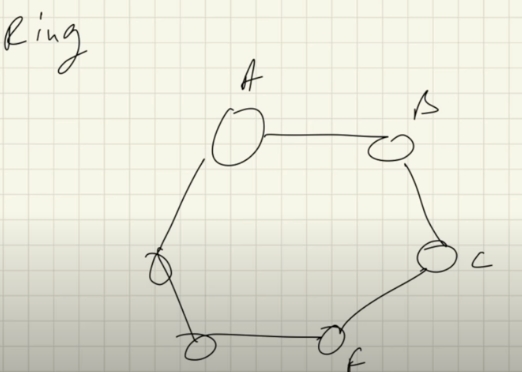 Ring
A
B
C
F